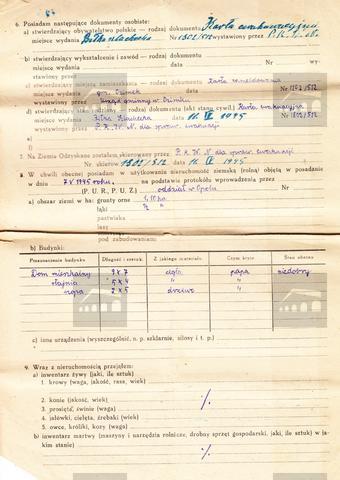 6. Posiadam następujące dokumenty osobiste:
a) stwierdzający obywatelstwo polskie — rodzaj dokumentu Karta ewakuacyjna
miejsce wydania Biłka szlachecka Nr 1802/512 wystawiony przez
b) stwierdzający wykształcenie i zawód — rodzaj dokumentu
miejsce wydania data Nr wy-
stawiony przez
c) stwierdzający miejsce zamieszkania — rodzaj dokumentu Karta
miejsce wydania data Nr
wystawiony przez Urząd gminny w Ozimku
d) stwierdzający stan rodzinny — rodzaj dokumentu (akt stanu cywil.) Karta ewakuacyjna
miejsce wydania Biłka szlachecka data 16 IV 1945 Nr 1802/512
wystawiony przez P. K. W. N. dla spraw ewakuacji
e)
f)
7. Na Ziemie Odzyskane zostałem skierowany przez P. K. W. N. dla spraw ewakuacji
Nr skierow. 1802/512 data 16 IV 1945
8. W chwili obecnej posiadam w użytkowaniu nieruchomość ziemską (rolną) objętą w posiadanie
w dniu 7 V 1945 roku, na podstawie protokółu wprowadzenia przez
(P. U. R., P. U. Z.) oddział w Opolu Nr
a) obszar ziemi w ha: grunty orne
łąki
pastwiska
lasy
pod zabudowaniami:
b) Budynki:
Przeznaczenie budynku Długość i szerok. Z jakiego materiału Czym kryte Stan obecny
Dom mieszkalny 9 x 7 cegła papa niedobry
stajnia 5 x 4 " "
szopa 2 x 5 drzewo "
c) inne urządzenia (wyszczególnić, n. p. szklarnie, silosy i t. p.)
9. Wraz z nieruchomością przejąłem:
a) inwentarz żywy (jaki, ile sztuk)
1. krowy (waga, jakość, rasa, wiek)
2. konie (jakość, wiek)
3. prosięta, świnie (waga)
4. jałówki, cielęta, źrebaki (wiek)
5. owce, króliki, kozy (waga)
b) inwentarz martwy (maszyny i narzędzia rolnicze, drobny sprzęt gospodarski, jaki, ile sztuk) w ja-
kim stanie)